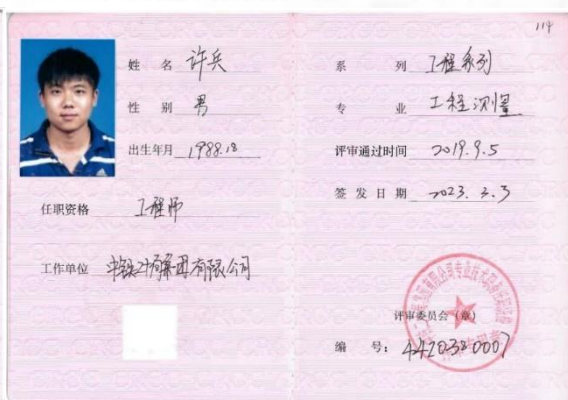 114
姓 名 许兵
性 别 男
出生年月 1988.18
任职资格 工程师
工作单位 中铁二十局集团有限公司
系 列 工程系列
专 业 工程测量
评审通过时间 2019.9.5
签发日期 2023.3.3
评审委员会(章)
编 号: 4420380007